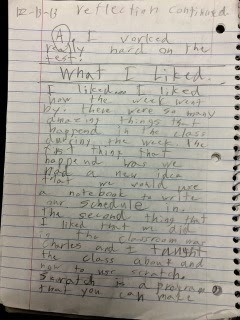 12-13-13 reflection continued
A, I worked
really hard on the
test!
What I Liked.
I liked I liked
how the week went
by. there were so many
amazing things that
happend in the class
during the week. the
1st thing that
happend was we
had a new idea
that we would use
a notebook to write
our schedule in.
The second thing that
I liked that we did
in the classroom was
Charles and I taught
the class about and
how to use scratch
scratch is a program
that you can make